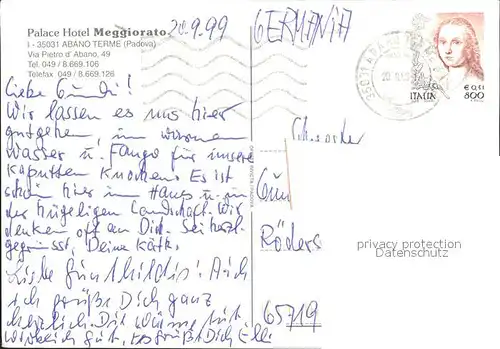 Palace Hotel Meggiorato
I - 35031 ABANO TERME (Padova)
Via Pietro d' Abano, 49
Tel. 049 / 8.669.106
Telefax 049 / 8.669.126
20.9.99
GERMANIA
ITALIA
800
Liebe Gundi!
Wir lassen es uns hier
gutgehen, im warmen
Wasser u. Fango für unsere
kaputten Knochen. Es ist
schön hier im Haus u. in
der hügeligen Landschaft. Wir
denken oft an Dich. Sei herzl.
gegrüsst, Deine Käth.
Liebe Gunthildis! Auch
ich grüße Dich ganz
herzlich. Die Wärme tut
wirklich gut, es grüßt Dich
Gun
Röders
65719
privacy protection
Datenschutz